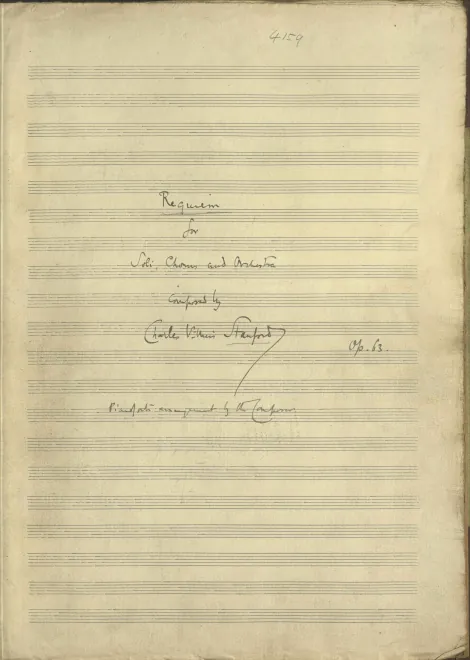 4159
Requiem
for
Soli, Chorus and Orchestra
Composed by
Charles Villiers Stanford
Op. 63.
Pianoforte arrangement by the Composer.